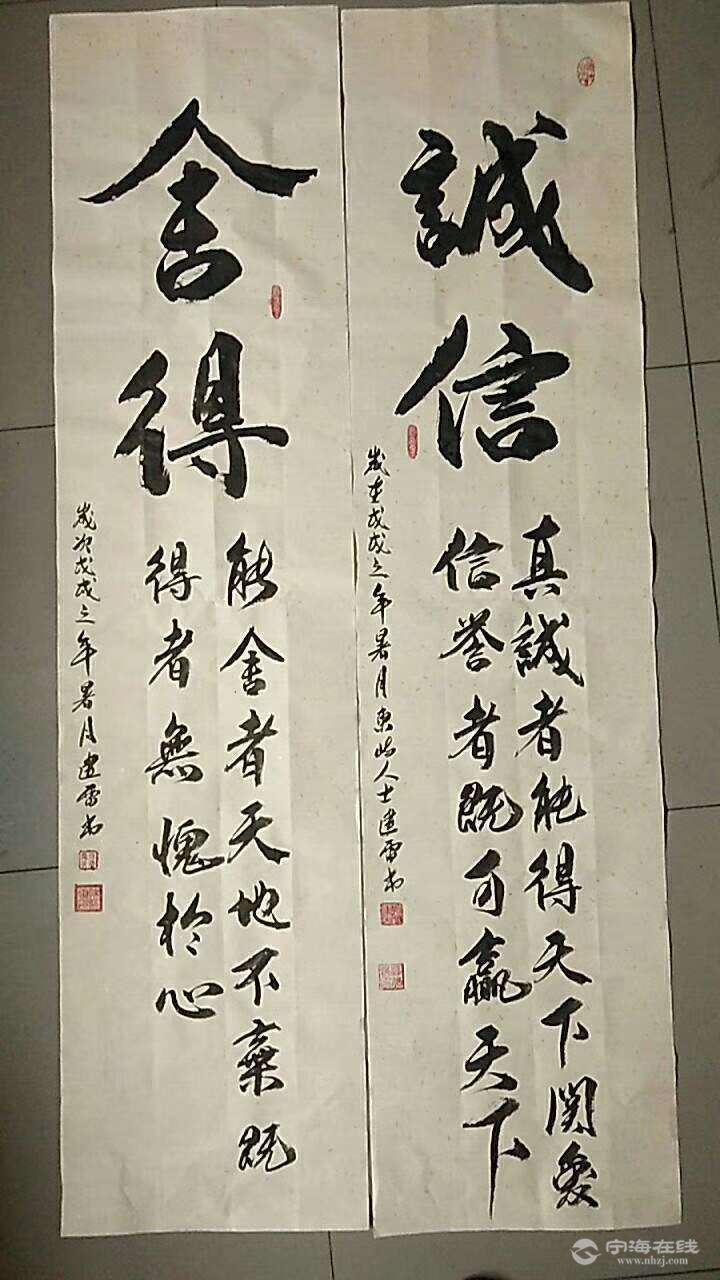 誠信
真誠者能得天下関爱
信誉者既可赢天下
歲在戊戌之年暑月東岵人士建雷书
舍得
能舍者天地不棄既
得者無愧於心
歲次戊戌之年暑月建雷书
宁海在线
www.nhzj.com